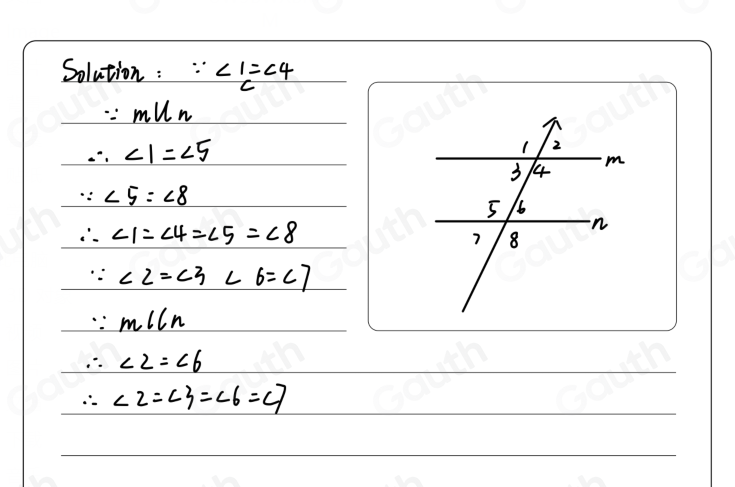 Solution: ∵ ∠1=∠4
∵ m∥n
∴ ∠1=∠5
∵ ∠5=∠8
∴ ∠1=∠4=∠5=∠8
∵ ∠2=∠3 ∠6=∠7
∵ m∥n
∴ ∠2=∠6
∴ ∠2=∠3=∠6=∠7
1 2
m
3 4
5 6
n
7 8
Gauth